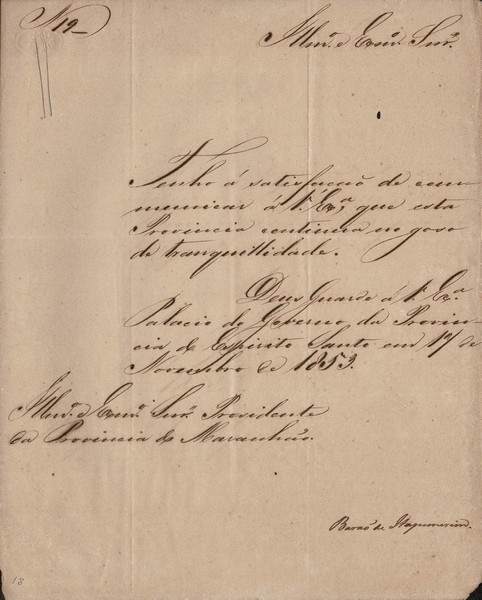 N 19_
Illmo. e Exmo. Snr.
Tenho á satisfação de com-
municar á V. Exa., que esta
Provincia continua no goso
de tranquillidade.
Deus Guarde á V. Exa.
Palacio do Governo da Provin-
cia do Espirito Santo em 17 de
Novembro de 1853.
Illmo. e Exmo. Snr. Presidente
da Provincia do Maranhão.
Barão de Itapemerim.
18